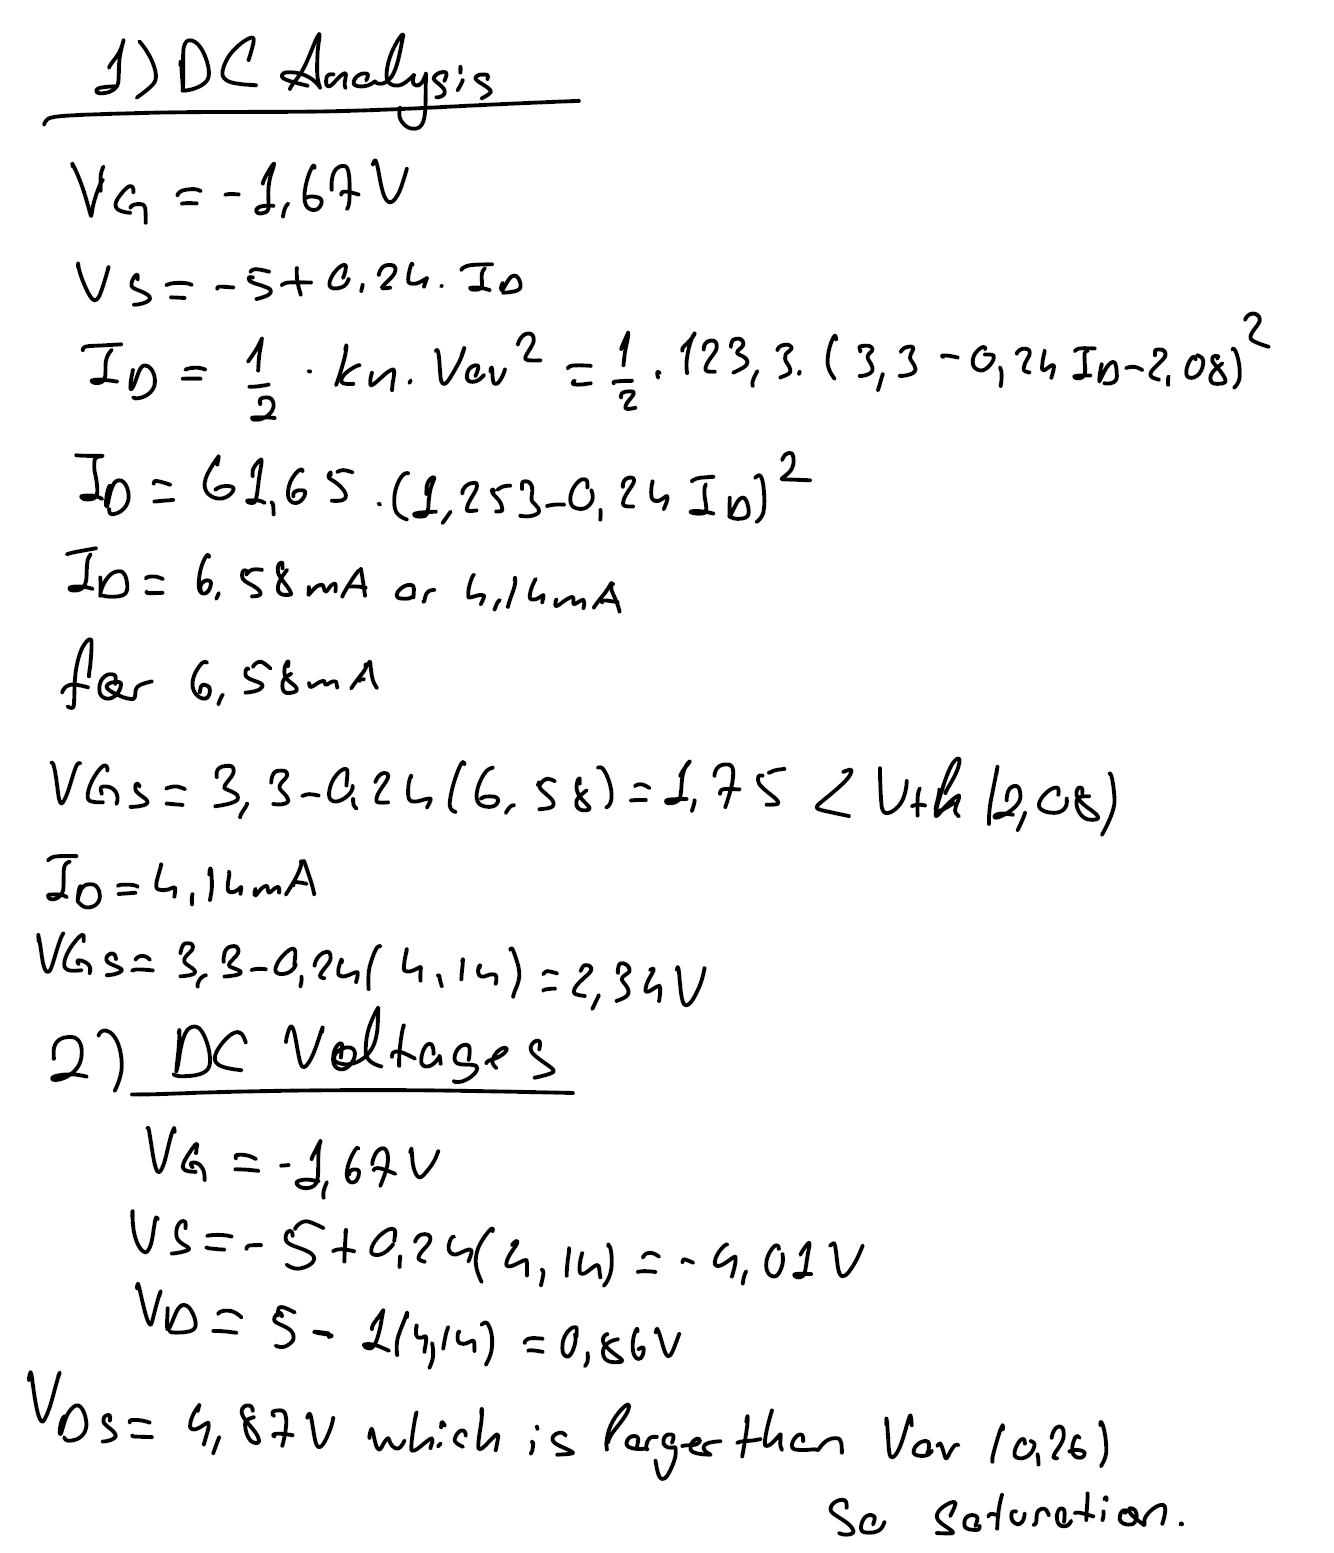 1) DC Analysis
VG = -1,67V
VS = -5+0,24.ID
ID = 1/2 . kn. Vov² = 1/2 . 123,3. (3,3-0,24 ID-2,08)²
ID = 61,65 .(1,253-0,24 ID)²
ID = 6,58mA or 4,14mA
for 6,58mA
VGS = 3,3-0,24(6,58)=1,75 < Vth (2,08)
ID = 4,14mA
VGS = 3,3-0,24(4,14)=2,34V
2) DC Voltages
VG = -1,67V
VS = -5+0,24(4,14) = -4,01V
VD = 5- 1(4,14) = 0,86V
VDS = 4,87V which is larger than Vov (0,26)
So saturation.